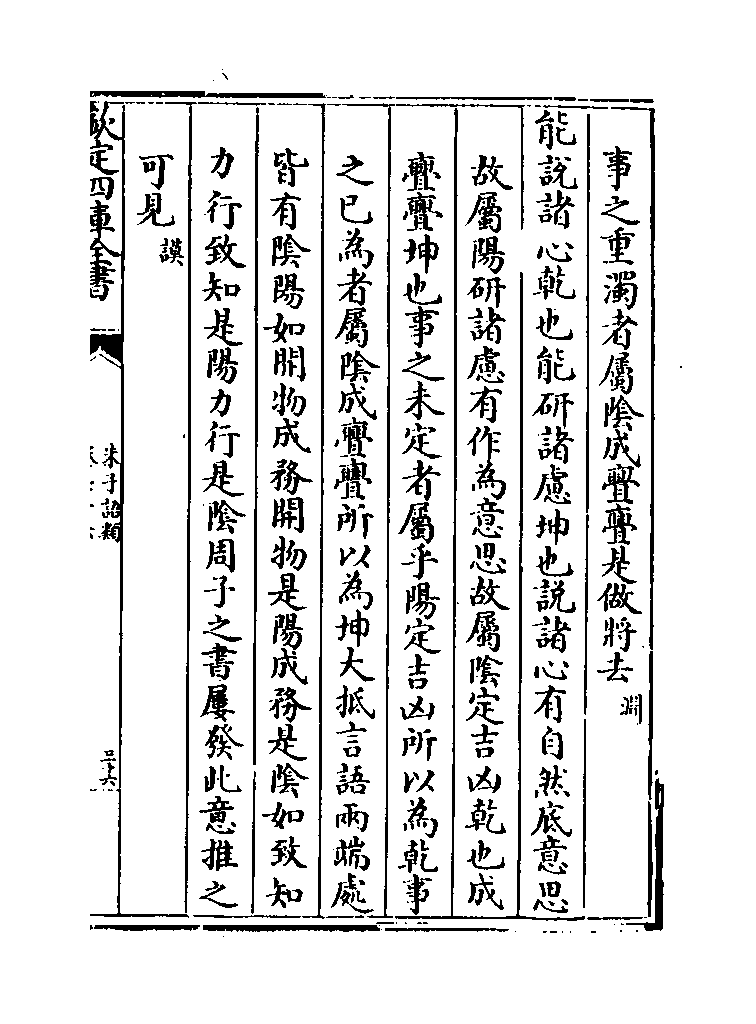 事之重濁者屬隂成亹亹是做將去淵
能説諸心乾也能研諸慮坤也説諸心有自然底意思
故屬陽研諸慮有作為意思故屬隂定吉凶乾也成
亹亹坤也事之未定者屬乎陽定吉凶所以為乾事
之已為者屬隂成亹亹所以為坤大抵言語兩端處
皆有隂陽如開物成務開物是陽成務是隂如致知
力行致知是陽力行是隂周子之書屢發此意推之
可見謨
欽定四庫全書
朱子語類
二十六